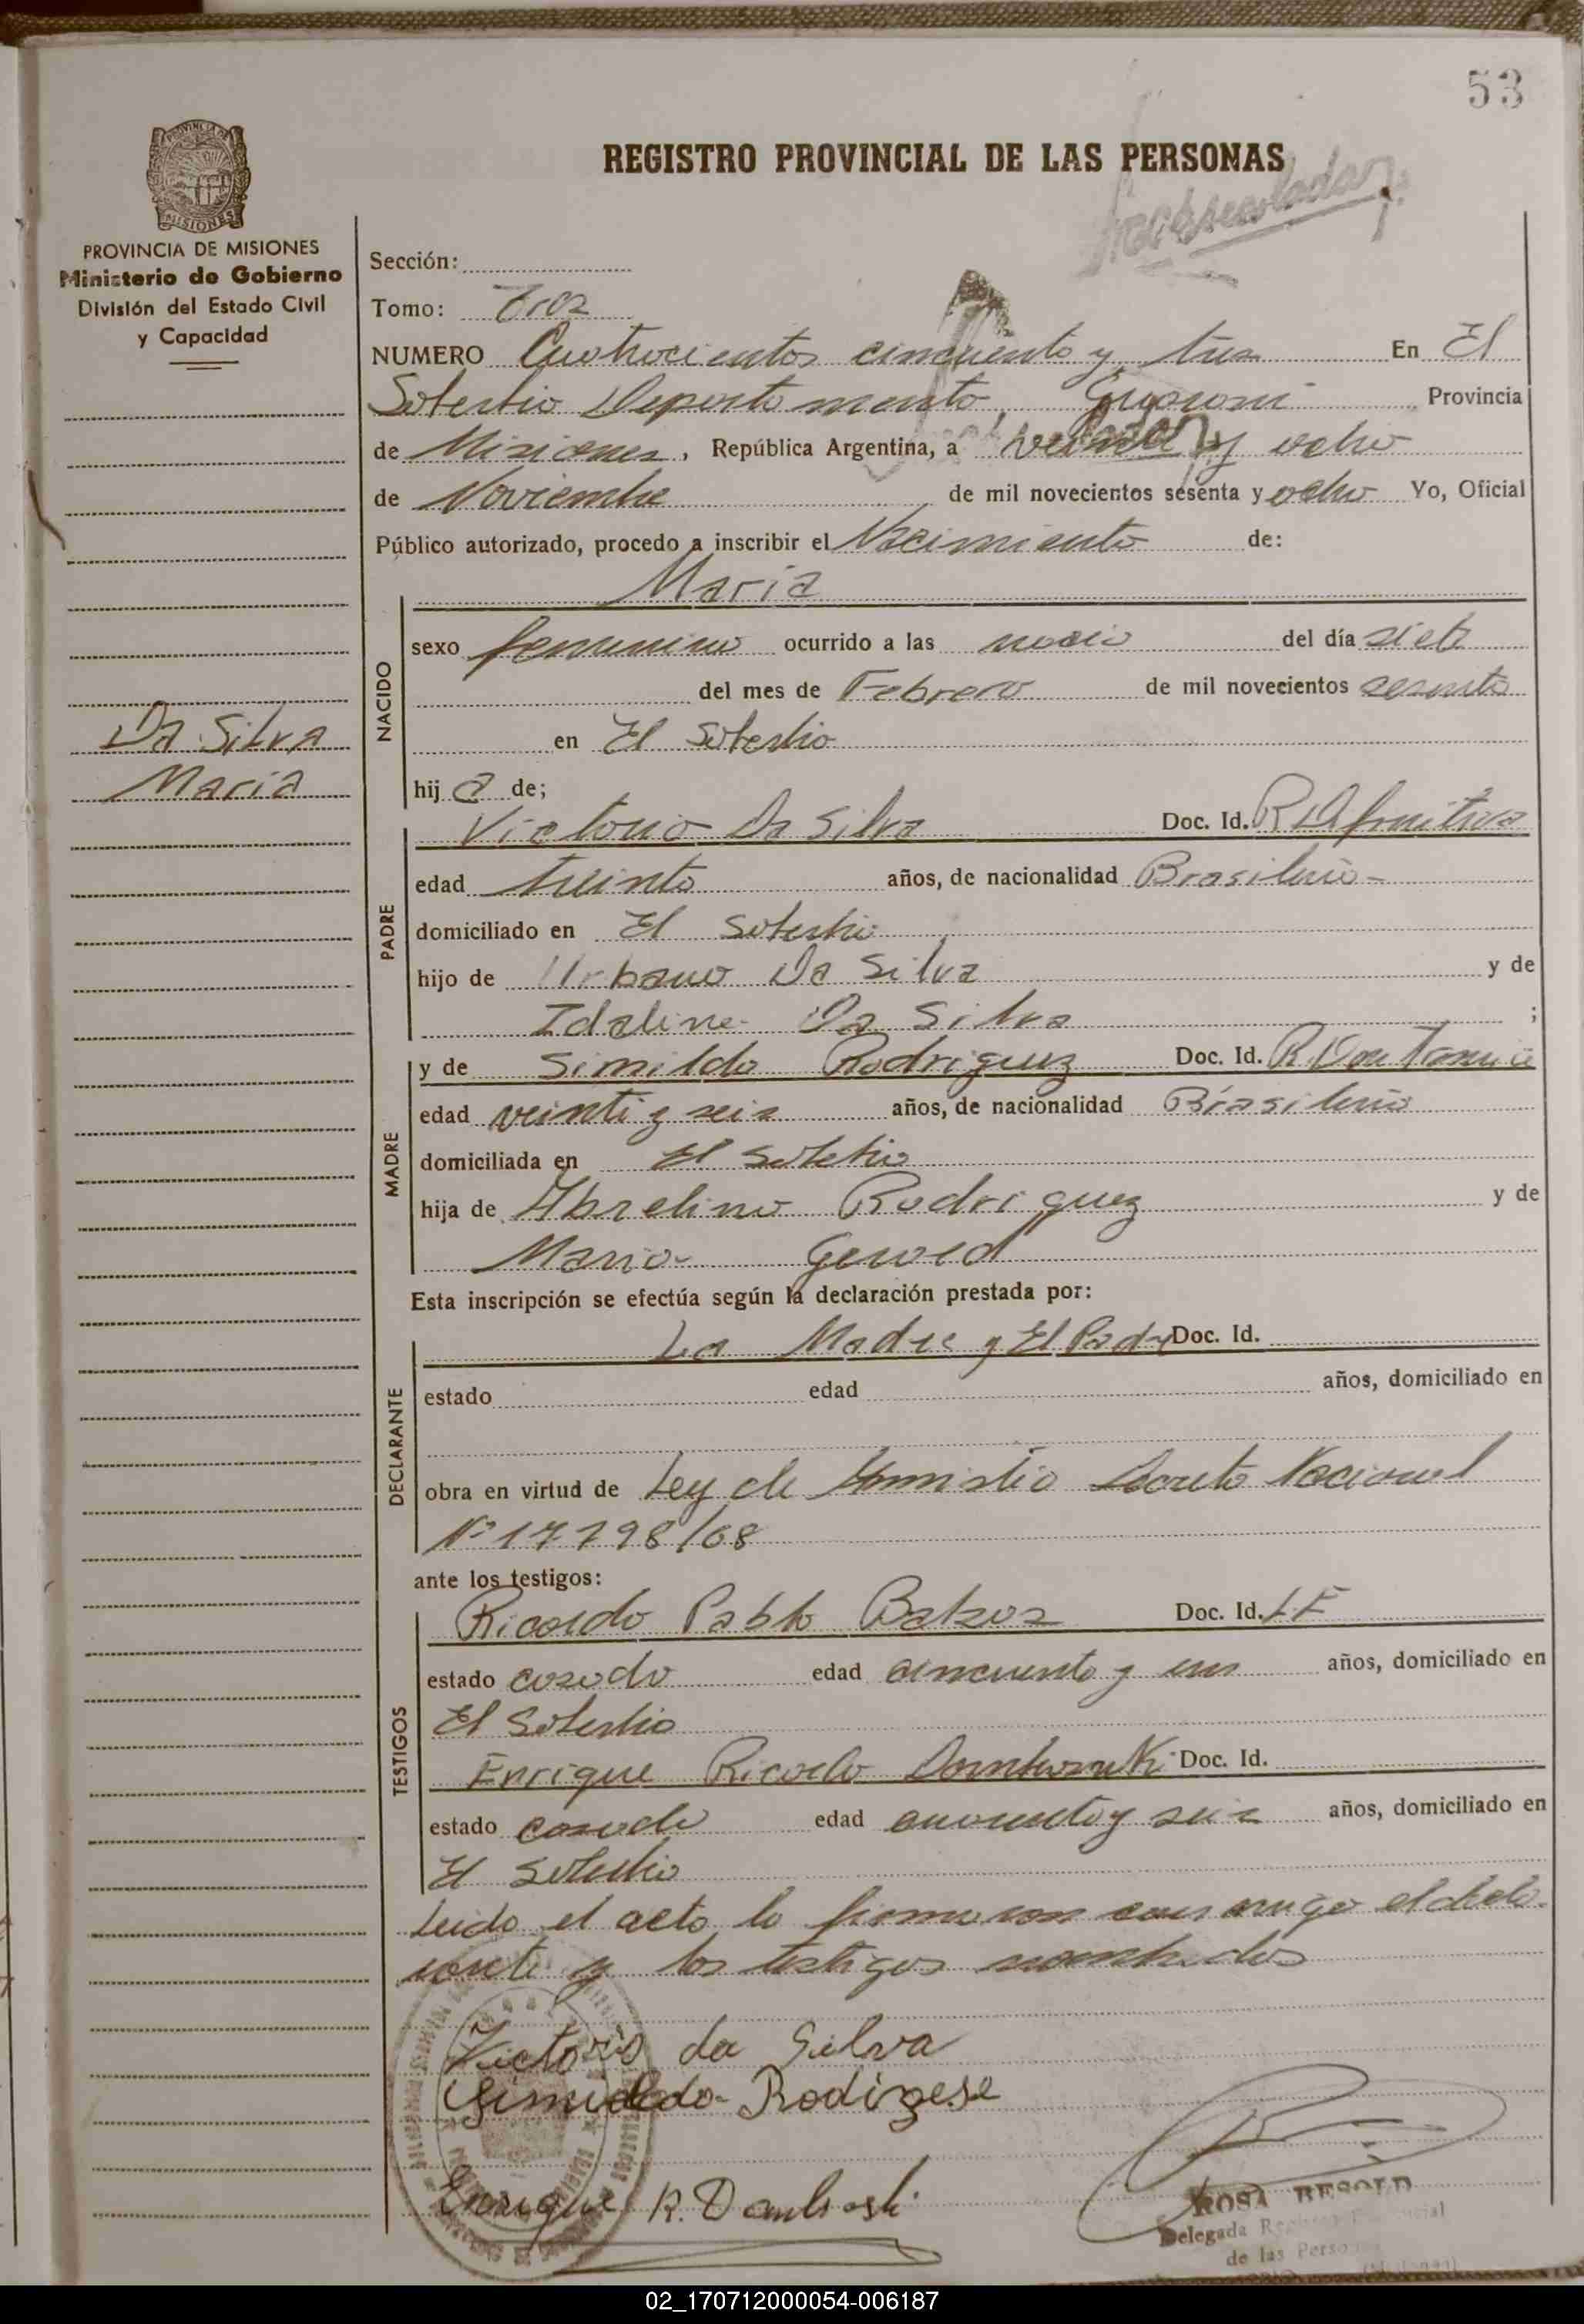 53
REGISTRO PROVINCIAL DE LAS PERSONAS
PROVINCIA DE MISIONES
Ministerio de Gobierno
División del Estado Civil
y Capacidad
Sección:
Tomo:
NUMERO Cuatrocientos cincuenta y tres En El
Soberbio Departamento Guaraní Provincia
de Misiones, República Argentina, a veinte y ocho
de Noviembre de mil novecientos sesenta y ocho Yo, Oficial
Público autorizado, procedo a inscribir el Nacimiento de:
Maria
NACIDO
sexo femenino ocurrido a las del día siete
del mes de Febrero de mil novecientos sesenta
en El Soberbio
Da Silva
Maria
hij a de;
PADRE
Victorio Da Silva Doc. Id.
edad treinta años, de nacionalidad Brasileño
domiciliado en El Soberbio
hijo de Urbano Da Silva y de
Idaline Da Silva ;
MADRE
y de Similda Rodriguez Doc. Id.
edad veinti y seis años, de nacionalidad Brasileño
domiciliada en El Soberbio
hija de Rodriguez y de
Maria
Esta inscripción se efectúa según la declaración prestada por:
DECLARANTE
La Madre y El Padre Doc. Id.
estado edad años, domiciliado en
obra en virtud de Ley de Amnistia Decreto Nacional
Nº 17798/68
ante los testigos:
TESTIGOS
Ricardo Pablo Doc. Id. L.E
estado casado edad cincuenta y un años, domiciliado en
El Soberbio
Enrique Ricardo Doc. Id.
estado casado edad cuarenta y seis años, domiciliado en
El Soberbio
Leido el acto lo firmaron conmigo el decla-
rante y los testigos nombrados
Victorio da Silva
Rodigese
Enrique R.
ROSA BESOLD
Delegada Registro Provincial
de las Personas
02_170712000054-006187